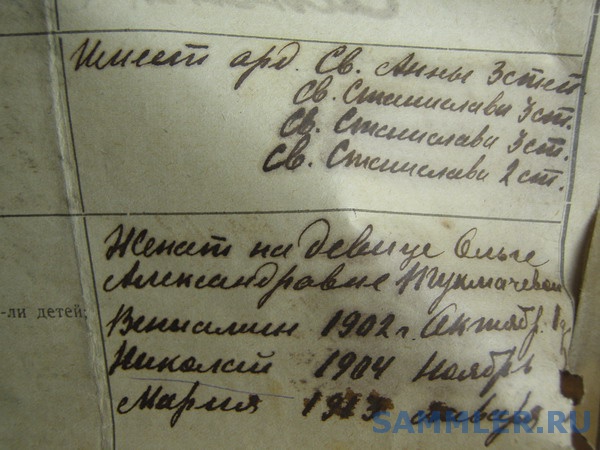 Имеет орд. Св. Анны 3 степ
Св. Станислава 3 ст.
Св. Станислава 3 ст.
Св. Станислава 2 ст.
Женат на девице Ольге
Александровне Тукмачевой
-ли детей;
Вениамин 1902 г. Октябр.
Николай 1904 Ноябрь
Мария 1913 января
SAMMLER.RU